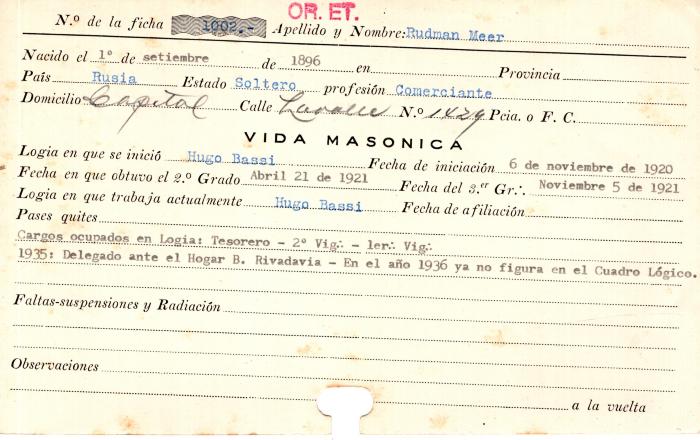 OR. ET.
N.º de la ficha 1002.- Apellido y Nombre: Rudman Meer
Nacido el 1º de setiembre de 1896 en Provincia
País Rusia Estado Soltero profesión Comerciante
Domicilio Capital Calle Lavalle N.º 1429 Pcia. o F. C.
VIDA MASONICA
Logia en que se inició Hugo Bassi Fecha de iniciación 6 de noviembre de 1920
Fecha en que obtuvo el 2.º Grado Abril 21 de 1921 Fecha del 3.er Gr∴ Noviembre 5 de 1921
Logia en que trabaja actualmente Hugo Bassi Fecha de afiliación
Pases quites
Cargos ocupados en Logia: Tesorero - 2º Vig∴ - 1er∴ Vig∴
1935: Delegado ante el Hogar B. Rivadavia - En el año 1936 ya no figura en el Cuadro Lógico.
Faltas-suspensiones y Radiación
Observaciones
a la vuelta